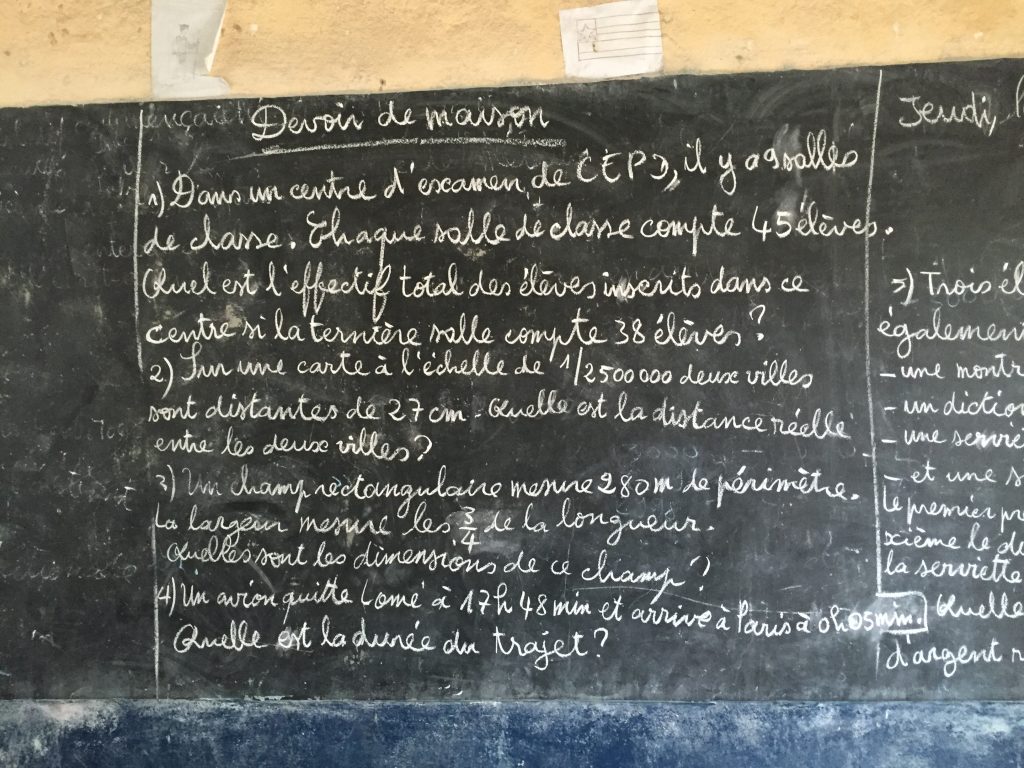 Devoir de maison
1) Dans un centre d'examen de CEPD, il y a 9 salles
de classe. Chaque salle de classe compte 45 élèves.
Quel est l'effectif total des élèves inscrits dans ce
centre si la ternière salle compte 38 élèves?
2) Sur une carte à l'échelle de 1/2500000 deux villes
sont distantes de 27 cm. Quelle est la distance réelle
entre les deux villes?
3) Un champ rectangulaire mesure 280m de périmètre.
La largeur mesure les 3/4 de la longueur.
Quelles sont les dimensions de ce champ?
4) Un avion quitte Lomé à 17h 48min et arrive à Paris à 0h05min.
Quelle est la durée du trajet?
Jeudi,
5) Trois él
également
- une montr
- un diction
- une servie
- et une s
le premier pr
xième le d
la serviette
Quelle
d'argent r